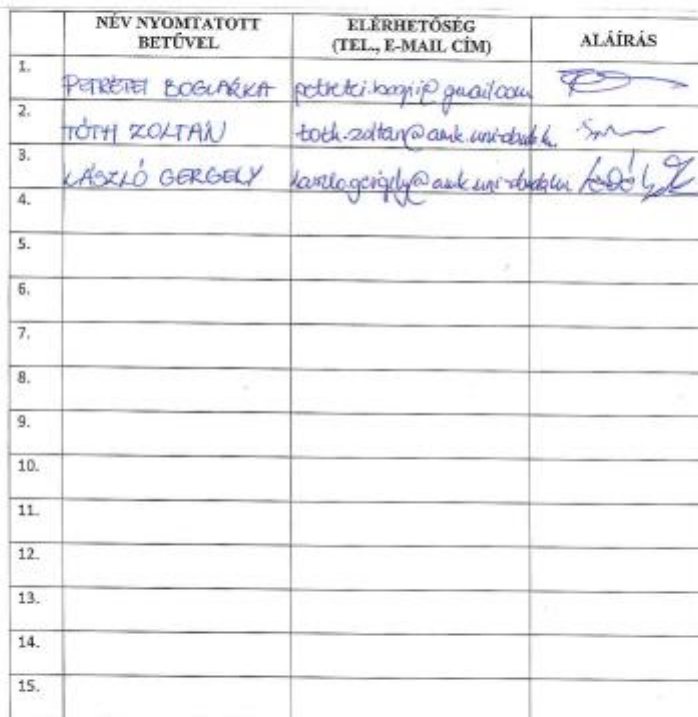 NÉV NYOMTATOTT BETŰVEL
ELÉRHETŐSÉG (TEL., E-MAIL CÍM)
ALÁÍRÁS
1. PETRÉTEI BOGLÁRKA petretei.bogii@gmail.com
2. TÓTH ZOLTÁN toth.zoltan@amk.uni-obuda.hu
3. LÁSZLÓ GERGELY laszlo.gergely@amk.uni-obuda.hu
4.
5.
6.
7.
8.
9.
10.
11.
12.
13.
14.
15.